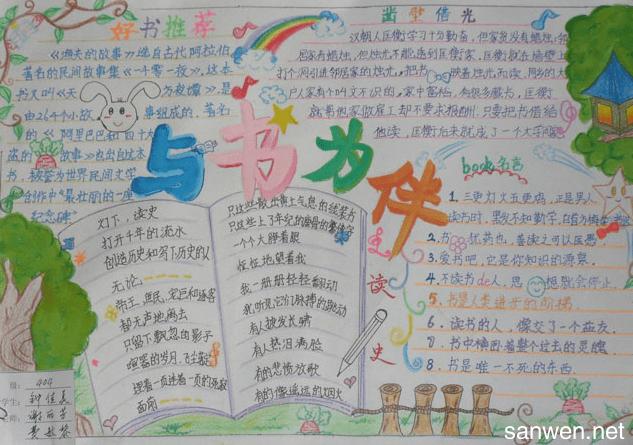 好书推荐
《渔夫的故事》选自古代阿拉伯
著名的民间故事集《一千零一夜》,这本
书又叫《天方夜谭》,是
由264个小故事组成的,著名
的《阿里巴巴和四十大
盗的故事》也出自这本
书,被誉为世界民间文学
创作中"最壮丽的一座
纪念碑"
凿壁借光
汉朝人匡衡学习十分勤奋,但家贫没有蜡烛,邻
居家有蜡烛,但烛光不能透到匡衡家,匡衡就在墙壁上
打个洞引进邻居家的烛光,把书映着烛光而读,同乡的大
户人家有个叫文不识的,家中富裕,有很多藏书,匡衡
就帮他家做雇工却不要求报酬,只要把书借给
他读,匡衡后来就成了一个大学问
与书为伴
book名言
1.三更灯火五更鸡,正是男人
读书时,黑发不知勤学
2.书犹药也,善读之可以医愚
3.爱书吧,它是你知识的源泉.
4.不读书de人,思想就会停止.
5.书是人类进步的阶梯.
6.读书的人,像交了一个益友.
7.书中横卧着整个过去的灵魂
8.书是唯一不死的东西.
灯下,读史
打开千年的流水
创造历史和写下历史的人
无论:
帝王、庶民、宠臣和逐客
都无声地离去
只留下飘忽的影子
喧嚣的岁月,飞尘散尽
踩着一页连着一页的死寂
面前
只这些散出黄土气息的线装书
只这些上了年纪的
一个个睁着眼
怔怔地望着我
我一册册轻轻翻动
我听见它们脉搏的跳动
有人披发长啸
有人热泪满脸
有的悲愤放歌
有的像遥远的烟火
读史
级:404
学生:
师:
sanwen.net